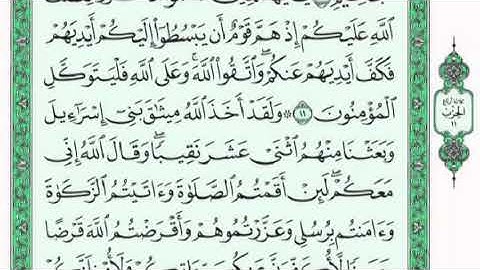 ٱللَّهِ عَلَيۡكُمۡ إِذۡ هَمَّ قَوۡمٌ أَن يَبۡسُطُوٓاْ إِلَيۡكُمۡ أَيۡدِيَهُمۡ
فَكَفَّ أَيۡدِيَهُمۡ عَنكُمۡۖ وَٱتَّقُواْ ٱللَّهَۚ وَعَلَى ٱللَّهِ فَلۡيَتَوَكَّلِ
ٱلۡمُؤۡمِنُونَ ١١ ۞ وَلَقَدۡ أَخَذَ ٱللَّهُ مِيثَٰقَ بَنِيٓ إِسۡرَٰٓءِيلَ
وَبَعَثۡنَا مِنۡهُمُ ٱثۡنَيۡ عَشَرَ نَقِيبٗاۖ وَقَالَ ٱللَّهُ إِنِّي
مَعَكُمۡۖ لَئِنۡ أَقَمۡتُمُ ٱلصَّلَوٰةَ وَءَاتَيۡتُمُ ٱلزَّكَوٰةَ
وَءَامَنتُم بِرُسُلِي وَعَزَّرۡتُمُوهُمۡ وَأَقۡرَضۡتُمُ ٱللَّهَ قَرۡضًا
الحزب
١١